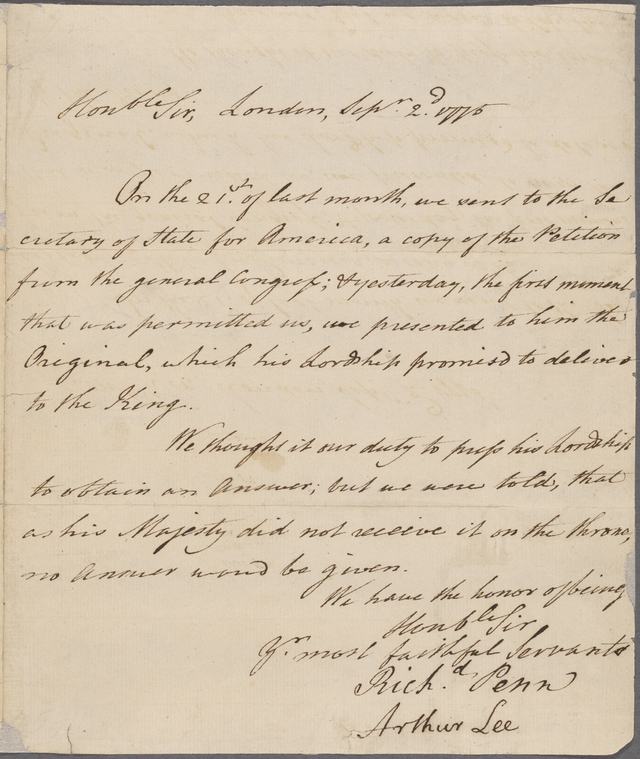 Honble Sir, London, Sepr. 2d. 1775
On the 21st. of last month, we sent to the Se
cretary of State for America, a copy of the Petition
from the general Congress; & yesterday, the first moment
that was permitted us, we presented to him the
Original, which his Lordship promised to deliver
to the King.
We thought it our duty to press his Lordship
to obtain an Answer; but we were told, that
as his Majesty did not receive it on the throne,
no Answer woud be given.
We have the honor of being
Honble Sir
Yr. most faithful Servants
Richd. Penn
Arthur Lee